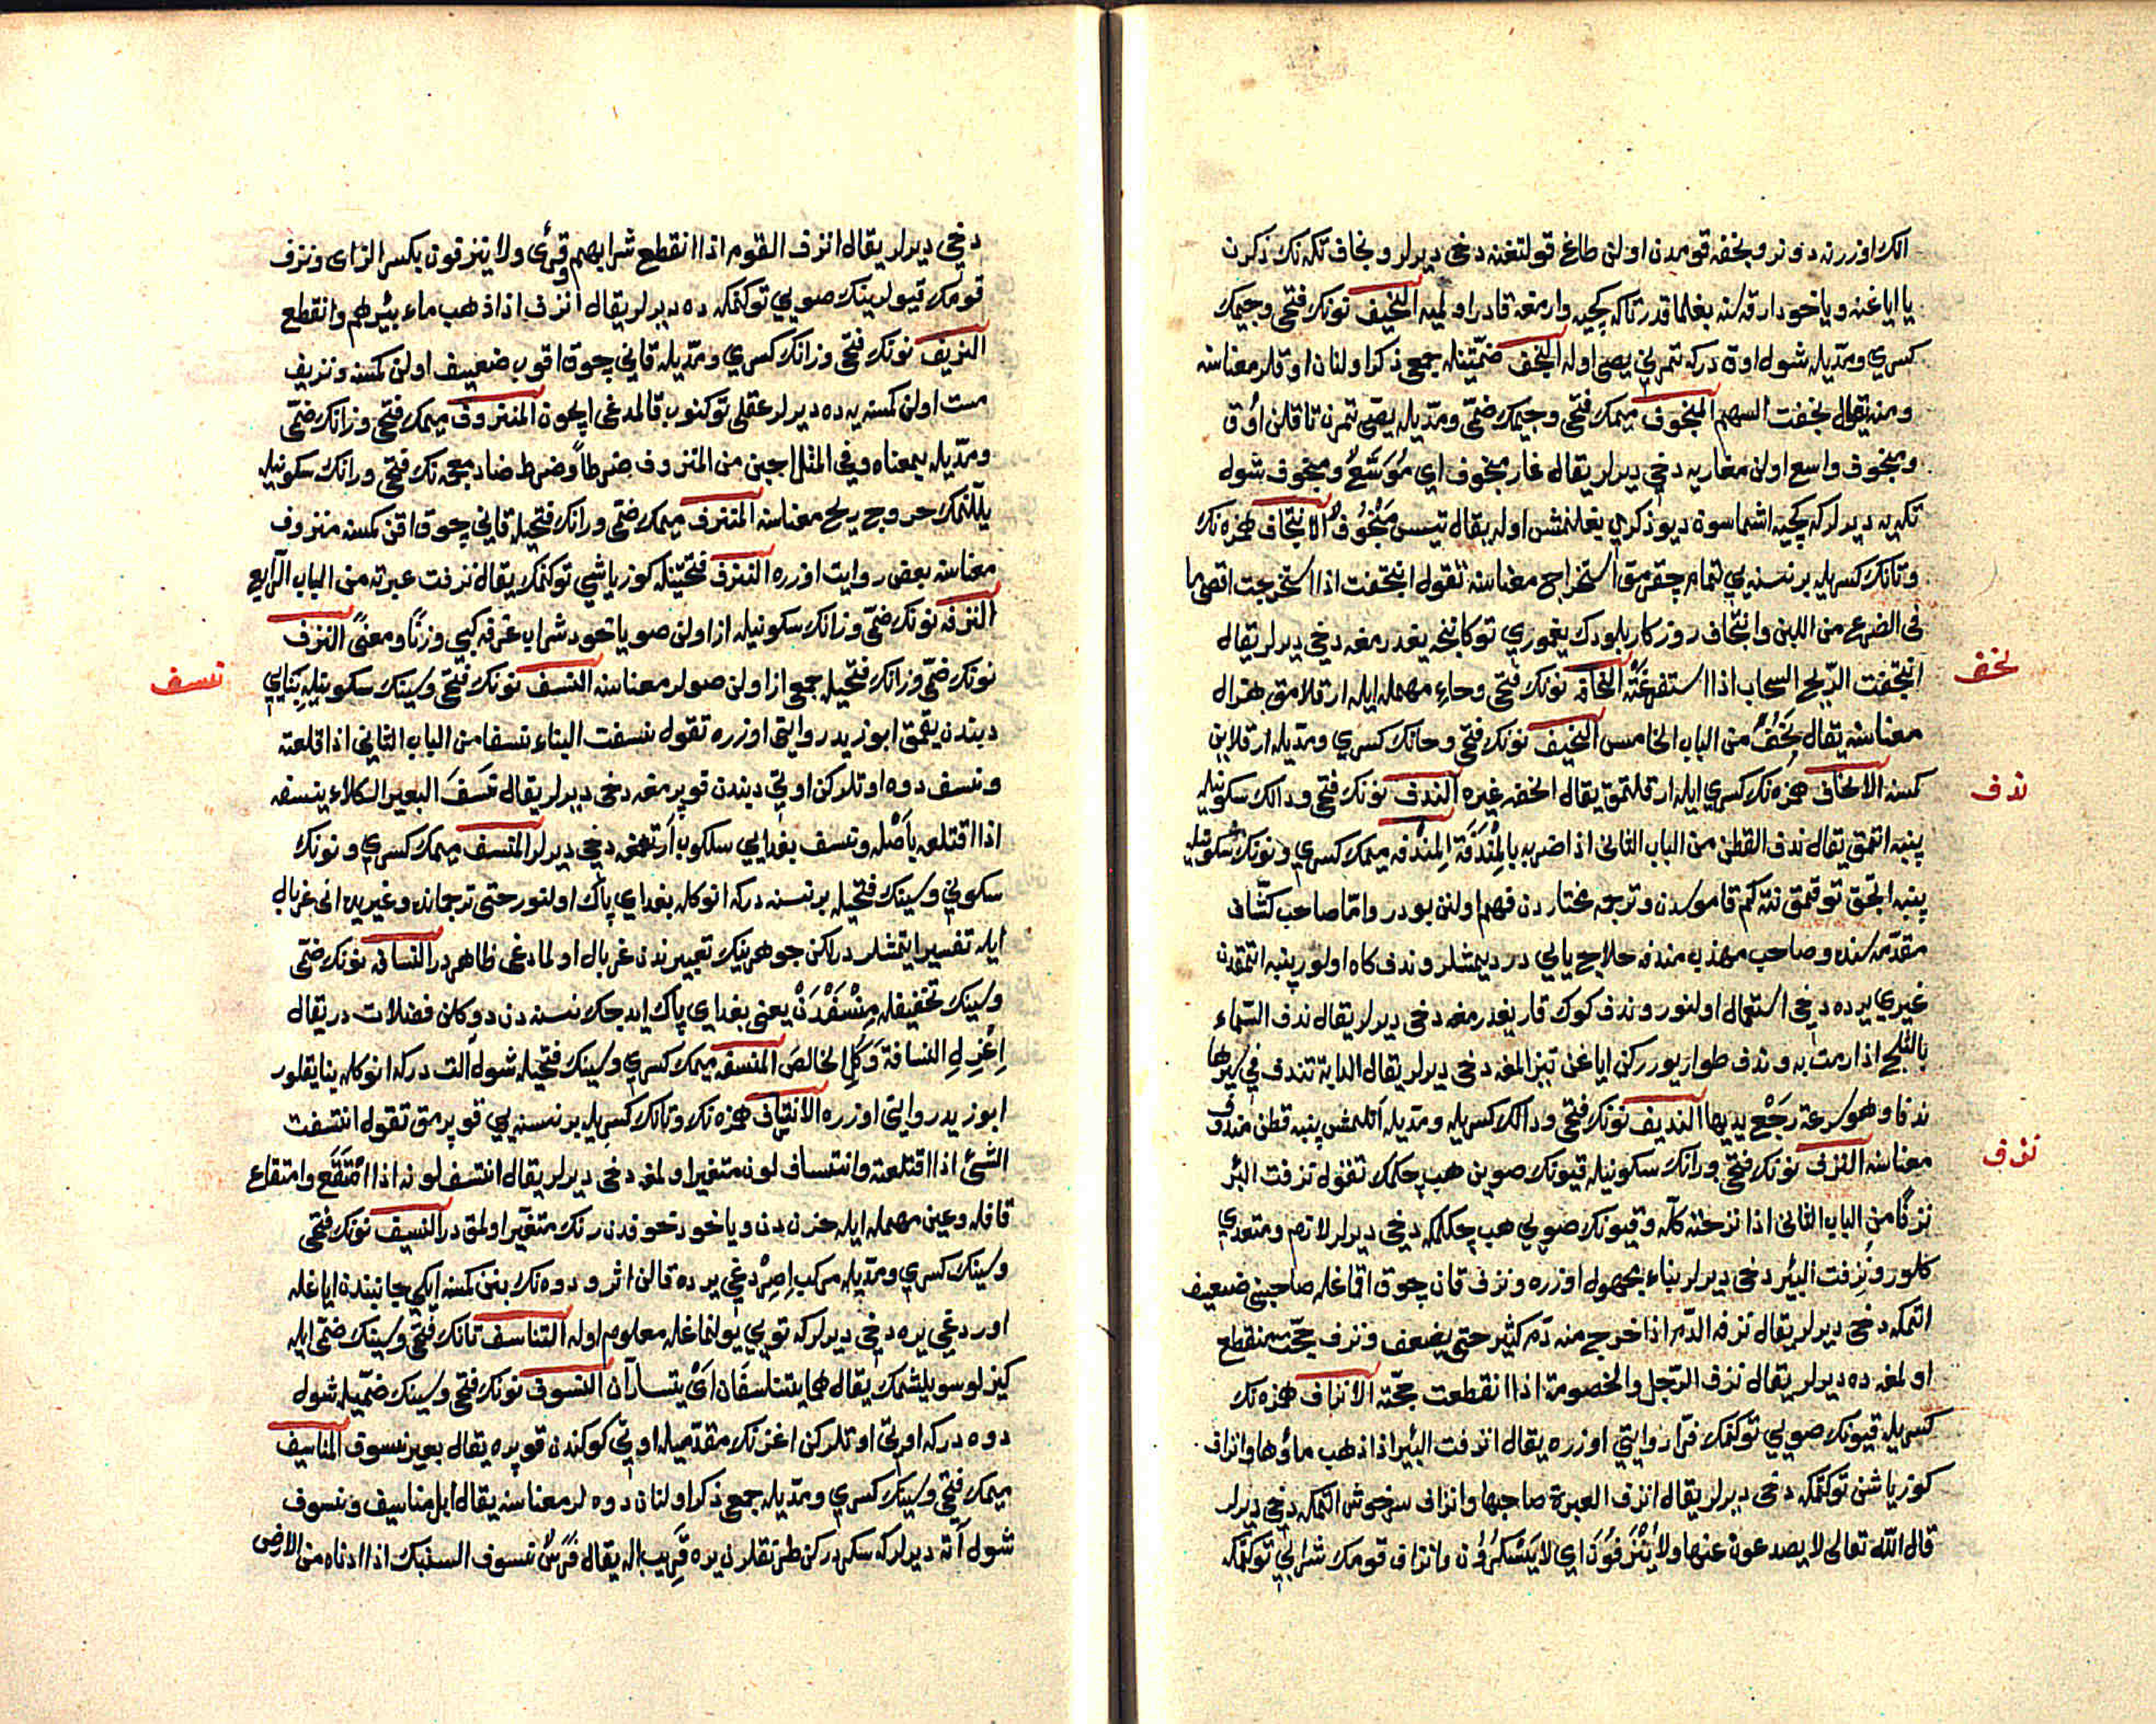 الك اوزرنه دونر ونجفه قومدن اولن طاغ قولتغنه دخي ديرلر ونجاف تكه نك ذكرن
يا اياغنه ويا خود ارقه سنه بغلما قدر تاكه كچيه وارمغه قادر اولميه النجيف نونك فتحي وجيمك
كسري ومدّيله شول اوق دركه تمرني يصي اوله النجف ضمّتينله جمعي ذكر اولنان اوقلر معناسنه
ومنه تقول نجفت السهم المنجوف ميمك فتحي وجيمك ضمّي ومدّيله يصّي تمرن تاقلن اوق
ومنجوف واسع اولن مغاريه دخي ديرلر يقال غار منجوف اي مُوَسَّعٌ ومنجوف شول
تكه يه ديرلر كه كچيه اشماسون ديو ذكري بغلنمش اوله يقال تيس مَنْجُوفٌ الانتجاف همزه نك
وتانك كسريله بر نسنه يي تمام چقرمق استخراج معناسنه تقول انتجفت اذا استخرجت اقصى ما
في الضرع من اللبن وانتجاف روزكار بلودك يغموري توكانجه يغدرمغه دخي ديرلر يقال
انتجفت الرّيح السحاب اذا استفرغته النحافه نونك فتحي وحاء مهمله ايله ارقلامق هزال
نحف
معناسنه يقال نَحُفَ من الباب الخامس النحيف نونك فتحي وحانك كسري ومدّيله ارقلاين
كمسنه الانحاف همزه نك كسري ايله ارقلتمق يقال انحفه غيره الندف نونك فتحي ودالك سكونيله
ندف
پنبه اتمق يقال ندف القطن من الباب الثاني اذا ضربه بالمِنْدَفَة المِنْدفه ميمك كسري ونونك سكونيله
پنبه اتجق توقمق نته كم قاموسدن وترجمه مختاردن فهم اولنن بودر وامّا صاحب كشّاف
مقدّمه سنده وصاحب مهذب مندفه حلاج يايي در ديمشلر وندف كاه اولور پنبه اتمقدن
غيري يرده دخي استعمال اولنور وندف كوك قار يغدرمغه دخي ديرلر يقال ندف السّماء
بالثلج اذا رمت به وندف طوار يوررکن اياغن تيز المغه دخي ديرلر يقال الدابة تندف في سيرها
ندفا وهو سرعة رَجْع يديها النديف نونك فتحي ودالك كسريله ومدّيله اتلمش پنبه قطن مندف
معناسنه النزف نونك فتحي وزانك سكونيله قيونك صوين هب چكمك تقول نزفت البئر
نزف
نزفًا من الباب الثاني اذا نزحته كلّه وقيونك صويي هب چكلمكه دخي ديرلر لازم ومتعدي
كلور ونُزفت البئر دخي ديرلر بناء مجهول اوزره ونزف قان چوق اقماغله صاحبني ضعيف
اتمكه دخي ديرلر يقال نزفه الدّم اذا خرج منه دَم كثير حتى يضعف ونزف حجّت منقطع
اولمغه ده ديرلر يقال نزف الرّجل والخصومة اذا انقطعت حجّته الانزاف همزه نك
كسريله قيونك صويي توكنمك فرّا روايتي اوزره يقال انزفت البئر اذا ذهب ماؤها وانزاف
كوز ياشن توكتمكه دخي ديرلر يقال انزف العبرة صاحبها وانزاف سرخوش اتمكه دخي ديرلر
قال الله تعالى لا يصدعون عنها ولا يُنْزَفُونَ اي لا يَسْكَرُون وانزاف قومك شرابي توكنمكه
دخي ديرلر يقال انزف القوم اذا انقطع شرابهم وقرئ ولا ينزفون بكسر الزاى ونزف
قومك قيولرينك صويي توكنمكه ده ديرلر يقال انزف اذا ذهب ماء بئرهم وانقطع
النزيف نونك فتحي وزانك كسري ومدّيله قاني چوق اقوب ضعيف اولن كمسنه ونزيف
مست اولن كمسنه يه ده ديرلر عقلي توكنوب قالمدغي اچون المنزوف ميمك فتحي وزانك ضمّي
ومدّيله بمعناه وفي المثل اجبن من المنزوف ضرطاً وضرط ضاد معجمه نك فتحي ورانك سكونيله
يللنمك خروج ريح معناسنه المنزف ميمك ضمّي وزانك فتحيله قاني چوق اقن كمسنه منزوف
معناسنه بعض روايت اوزره النزف فتحتينله كوز ياشي توكنمك يقال نزفت عبرته من الباب الرّابع
النزفه نونك ضمّي وزانك سكونيله از اولن صو يا خود شراب غرفه كبي وزنًا ومعنًى النزف
نونك ضمّي وزانك فتحيله جمعي از اولن صولر معناسنه النسف نونك فتحي وسينك سكونيله بنايي
نسف
ديبندن يقمق ابو زيد روايتي اوزره تقول نسفت البناء نسفا من الباب الثاني اذا قلعته
ونسف دوه اوتلركن اوتي ديبندن قوپرمغه دخي ديرلر يقال نَسَفَ البعير الكلاء ينسفه
اذا اقتلعه بأصله ونسف بغدايي سلكوب ارتمغه دخي ديرلر المنسف ميمك كسري ونونك
سكوني وسينك فتحيله بر نسنه دركه انوكله بغداي پاك اولنور حتى ترجمانده وغيريده اني غربال
ايله تفسير ايتمشلر در لكن جوهرينك تعبيرندن غربال اولمادغي ظاهردر النسافه نونك ضمّي
وسينك تخفيفله مِنْسَفْدَنْ يعني بغداي پاك ايده جك نسنه دن دوكلن فضلات در يقال
اِعْزِلِ النسافة وَكُلِ الخالصَ المنسفه ميمك كسري وسينك فتحيله شول آلت دركه انوكله بنا يقلور
ابو زيد روايتي اوزره الانتساف همزه نك وتانك كسريله بر نسنه يي قوپرمق تقول انتسفت
الشئ اذا اقتلعته وانتساف لون متغير اولمغه دخي ديرلر يقال انتسف لونه اذا امْتَقَعَ وامتقاع
قافله وعين مهمله ايله حزندن ويا خود خوفدن رنك متغيّر اولمق در النسيف نونك فتحي
وسينك كسري ومدّيله مركب اِصِرْدغي يرده قالن اثر ودوه نك بنن كمسنه ايكي جانبنده اياغله
اوردغي يره دخي ديرلر كه تويي يولنماغله معلوم اوله التناسف تانك فتحي وسينك ضمّي ايله
كيزلو سويلشمك يقال هما يتناسفَان اَيْ يتسارّان النسوف نونك فتحي وسينك ضمّيله شول
دوه دركه اوتي اوتلركن اغزنك مقدّميله اوتي كوكندن قوپره يقال بعير نسوف المناسيف
ميمك فتحي وسينك كسري ومدّيله جمعي ذكر اولنان دوه لر معناسنه يقال ابل مناسيف ونسوف
شول آته ديرلر كه سكردركن طرنقلرني يره قَرِيب اله يقال فَرَسٌ نسوف السنبك اذا ادناه من الارض